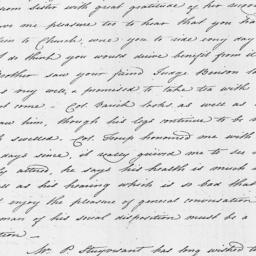 sister with great gratitude of her
me pleasure too to hear that you
to Church, were you to ride every day
I do think you would derive benefit from it
saw your friend Judge Benson
very well, & promised to take tea with
come – Col. Varick looks as well as
saw him, though his legs continue to be
swelled – Col. Troup honoured me with
days since, it really grieved me to see
he says his health is much
as his hearing which is so bad that
enjoy the pleasure of general conversation
man of his social disposition must be a
tion –
Mr. P. Stuyvesant has long wished to